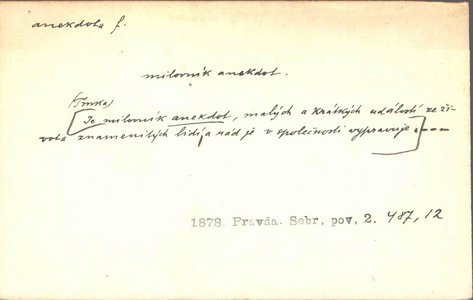 anekdota f.
milovník anekdot.
(Trnka)
[Je milovník anekdot, malých a krátkých událostí ze ži-
vota znamenitých lidí, a rád je v společnosti vypravuje]....
1878. Pravda. Sebr, pov. 2. 487, 12